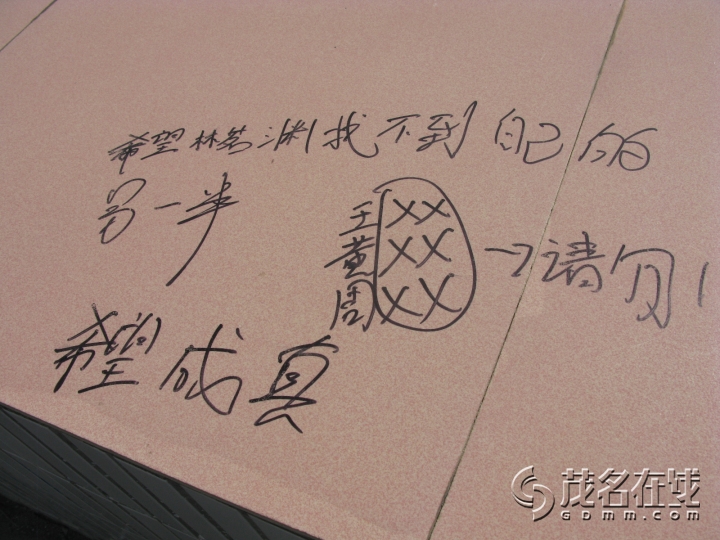 希望林茗渊找不到自己的
另一半
王XX
黄XX
周XX
→请勿
希望成真
茂名在线
GDMM.com